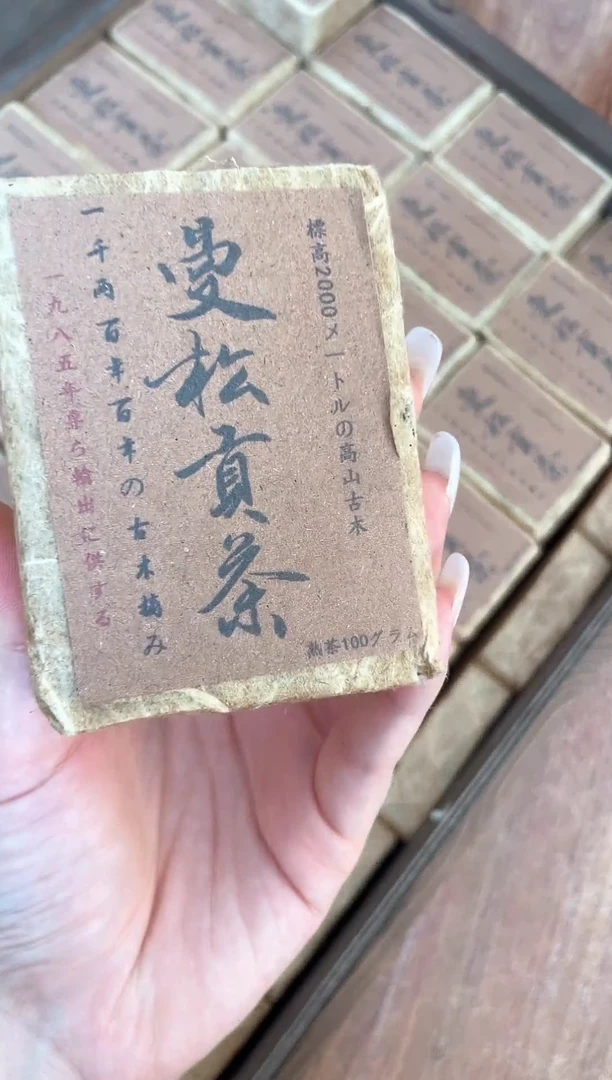 標高2000メートルの高山古木
曼松貢茶
一千両百年百年の古木摘み
一九八五年専ら輸出に供する
熟茶100グラム